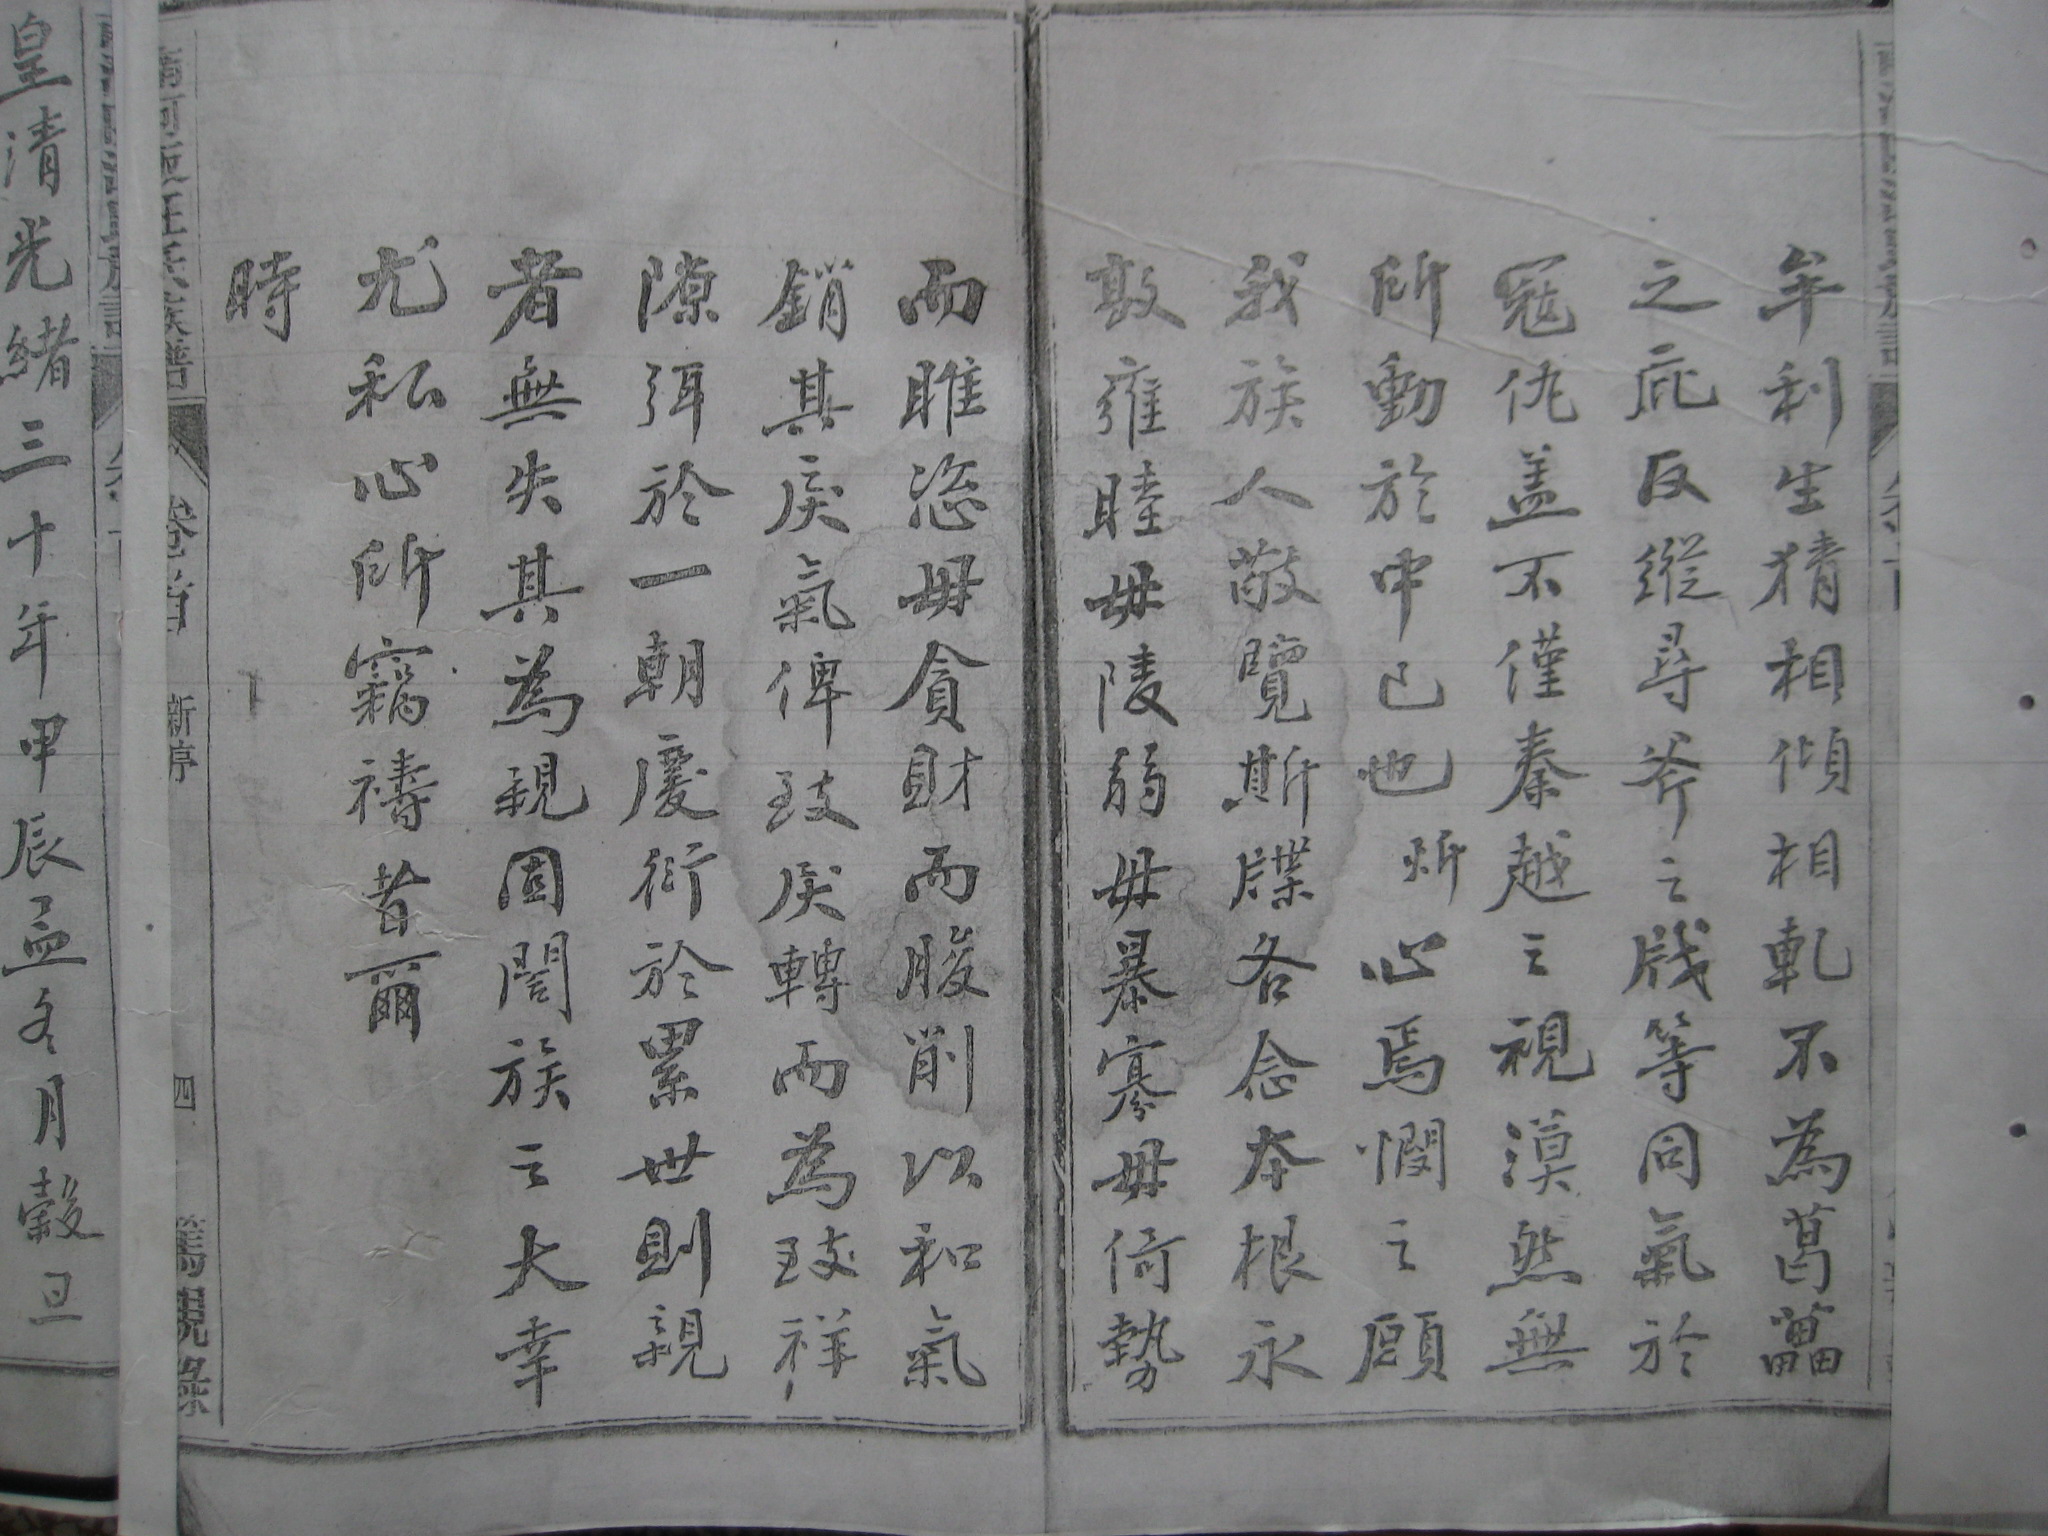 牟利生猜相傾相軋不為葛藟
之庇反縱尋斧之戕等同氣於
冦仇盖不僅秦越之視漠然無
所動於中已也㪽心焉憫之願
我族人敬覽斯牒各念本根永
敦雍睦毋陵弱毋暴寡毋倚勢
而睢恣毋貪財而朘削以和氣
銷其戾氣俾致戾轉而為致祥
隙弭於一朝慶衍於累世則親
者無失其為親固闔族之大幸
尤私心所竊禱者爾
時
卷首
新序
四
皇清光緒三十年甲辰孟冬月穀旦